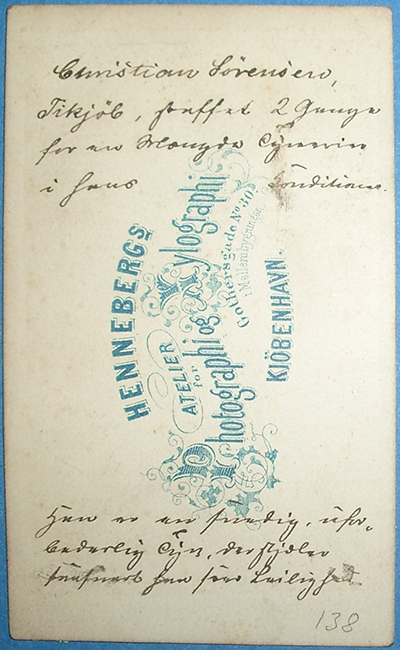 Christian Sørensen,
Tikjöb, straffet 2 Gange
for en Mængde Tyverier
i hans Conditioner.
HENNEBERGS
ATELIER
for
Photographi og Xylographi
Gothersgade No 30
i Mellembygningen
KJÖBENHAVN.
Han er en frædig, ufor-
bederlig Tyv, der stjæler
saasnart han seer Leilighed
138